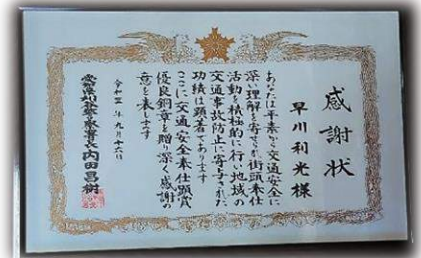 感謝状
早川利光様
あなたは平素から交通安全に
深い理解を寄せられ街頭奉仕
活動を積極的に行い地域の
交通事故防止に寄与された
功績は顕著であります
ここに交通安全奉仕顕賞
優良銅章を贈り深く感謝の
意を表します
令和三年九月十六日
愛知県 警察署長 内田昌樹